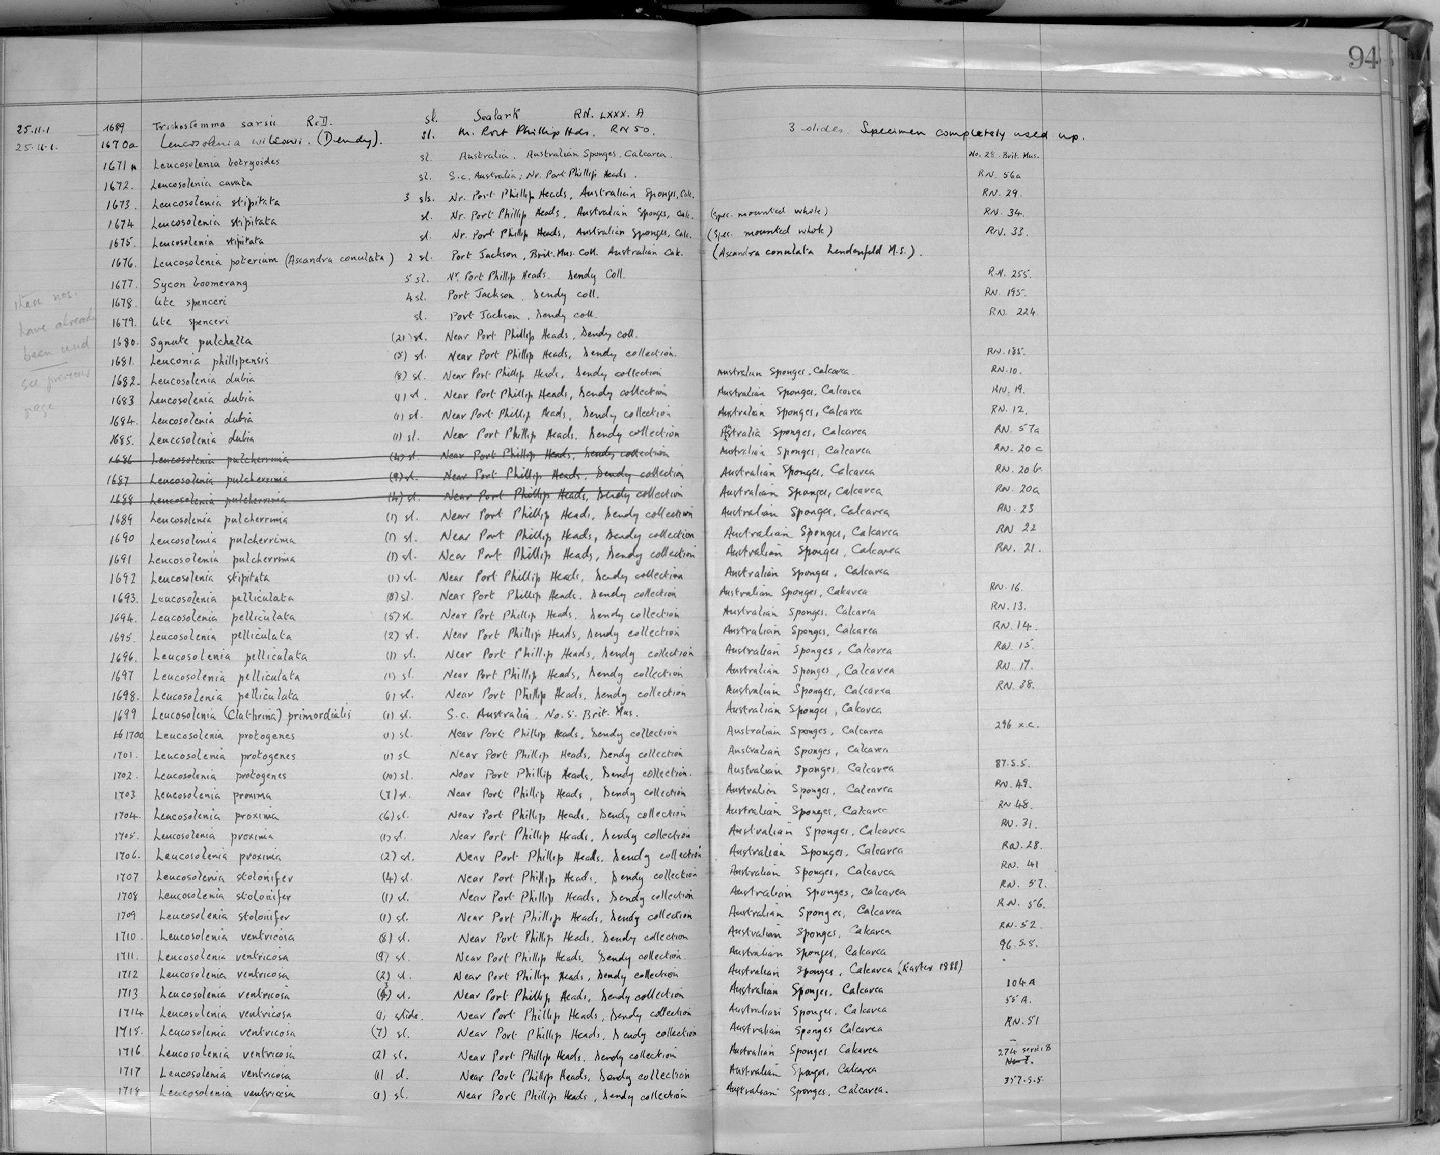 94
25.11.1 1689 Trichostemma sarsii R.D. sl. Sealark RN. LXXX. A
25.11.1. 1670a Leucosolenia wilsoni. (Dendy). sl. Nr. Port Phillip Hds. RN 50. 3 slides. Specimen completely used up.
1671 Leucosolenia botryoides sl. Australia. Australian Sponges. Calcarea. No. 25. Brit. Mus.
1672. Leucosolenia cavata sl. S.C. Australia; Nr. Port Phillip Heads. RN. 56a
1673. Leucosolenia stipitata 3 sls. Nr. Port Phillip Heads, Australian Sponges, Calc. RN. 29.
1674 Leucosolenia stipitata sl. Nr. Port Phillip Heads, Australian Sponges, Calc. (Spec. mounted whole) RN. 34.
1675. Leucosolenia stipitata sl. Nr. Port Phillip Heads, Australian Sponges, Calc. (Spec. mounted whole) RN. 33.
1676. Leucosolenia poterium (Ascandra conulata) 2 sl. Port Jackson, Brit. Mus. Coll. Australian Calc. (Ascandra conulata Lendenfeld M.S.).
1677. Sycon boomerang 5 sl. Nr. Port Phillip Heads. Dendy Coll. R.N. 255.
1678. Ute spenceri 4 sl. Port Jackson, Dendy coll. RN. 195.
1679. Ute spenceri sl. Port Jackson, Dendy coll. RN. 224
1680. Synute pulchella (21) sl. Near Port Phillip Heads, Dendy coll.
1681. Leuconia phillipensis (5) sl. Near Port Phillip Heads, Dendy collection. RN. 185.
these nos. have already been used see previous page
1682. Leucosolenia dubia (8) sl. Near Port Phillip Heads, Dendy collection Australian Sponges, Calcarea RN. 10.
1683 Leucosolenia dubia (1) sl. Near Port Phillip Heads, Dendy collection Australian Sponges, Calcarea RN. 19.
1684. Leucosolenia dubia (1) sl. Near Port Phillip Heads, Dendy collection Australian Sponges, Calcarea RN. 12.
1685. Leucosolenia dubia (1) sl. Near Port Phillip Heads, Dendy collection Australia Sponges, Calcarea RN. 57a
1686 Leucosolenia pulcherrima (4) sl Near Port Phillip Heads, Dendy collection Australian Sponges, Calcarea RN. 20 c
1687 Leucosolenia pulcherrima (9) sl. Near Port Phillip Heads, Dendy collection Australian Sponges, Calcarea RN. 20 b
1688 Leucosolenia pulcherrima (4) sl. Near Port Phillip Heads, Dendy collection Australian Sponges, Calcarea RN. 20a
1689 Leucosolenia pulcherrima (1) sl. Near Port Phillip Heads, Dendy collection Australian Sponges, Calcarea RN. 23
1690 Leucosolenia pulcherrima (1) sl. Near Port Phillip Heads, Dendy collection Australian Sponges, Calcarea RN 22
1691 Leucosolenia pulcherrima (1) sl. Near Port Phillip Heads, Dendy collection Australian Sponges, Calcarea RN. 21.
1692 Leucosolenia stipitata (1) sl. Near Port Phillip Heads, Dendy collection Australian Sponges, Calcarea
1693. Leucosolenia pelliculata (8) sl. Near Port Phillip Heads. Dendy collection Australian Sponges, Calcarea RN. 16.
1694. Leucosolenia pelliculata (5) sl. Near Port Phillip Heads, Dendy collection Australian Sponges, Calcarea RN. 13.
1695. Leucosolenia pelliculata (2) sl. Near Port Phillip Heads, Dendy collection Australian Sponges, Calcarea RN. 14.
1696. Leucosolenia pelliculata (1) sl. Near Port Phillip Heads, Dendy collection Australian Sponges, Calcarea RN. 15
1697 Leucosolenia pelliculata (1) sl. Near Port Phillip Heads, Dendy collection Australian Sponges, Calcarea RN. 17.
1698. Leucosolenia pelliculata (1) sl. Near Port Phillip Heads, Dendy collection Australian Sponges, Calcarea RN. 38.
1699 Leucosolenia (Clathrina) primordialis (1) sl. S.C. Australia. No. 5. Brit. Mus. Australian Sponges, Calcarea
1700 Leucosolenia protogenes (1) sl. Near Port Phillip Heads, Dendy collection Australian Sponges, Calcarea 296 x.c.
1701. Leucosolenia protogenes (1) sl Near Port Phillip Heads, Dendy collection Australian Sponges, Calcarea
1702. Leucosolenia protogenes (10) sl. Near Port Phillip Heads, Dendy collection. Australian Sponges, Calcarea 87.S.S.
1703 Leucosolenia proxima (7) sl. Near Port Phillip Heads, Dendy collection Australian Sponges, Calcarea RN. 49.
1704. Leucosolenia proxima (6) sl. Near Port Phillip Heads, Dendy collection Australian Sponges, Calcarea RN 48.
1705. Leucosolenia proxima (1) sl. Near Port Phillip Heads, Dendy collection Australian Sponges, Calcarea RN. 31.
1706. Leucosolenia proxima (2) sl. Near Port Phillip Heads, Dendy collection Australian Sponges, Calcarea RN. 28.
1707 Leucosolenia stolonifer (4) sl. Near Port Phillip Heads, Dendy collection Australian Sponges, Calcarea RN. 41
1708 Leucosolenia stolonifer (1) sl. Near Port Phillip Heads, Dendy collection Australian Sponges, Calcarea RN. 57.
1709 Leucosolenia stolonifer (1) sl. Near Port Phillip Heads, Dendy collection Australian Sponges, Calcarea RN. 56.
1710. Leucosolenia ventricosa (8) sl. Near Port Phillip Heads, Dendy collection Australian Sponges, Calcarea RN. 52.
1711. Leucosolenia ventricosa (9) sl. Near Port Phillip Heads. Dendy collection. Australian Sponges, Calcarea 96.S.S.
1712 Leucosolenia ventricosa (2) sl. Near Port Phillip Heads, Dendy collection Australian Sponges, Calcarea (Easter 1888)
1713 Leucosolenia ventricosa sl. Near Port Phillip Heads, Dendy collection Australian Sponges, Calcarea 104 A
1714 Leucosolenia ventricosa (1) slide. Near Port Phillip Heads, Dendy collection Australian Sponges, Calcarea 55 A.
1715. Leucosolenia ventricosa (7) sl. Near Port Phillip Heads, Dendy collection Australian Sponges Calcarea RN. 51
1716 Leucosolenia ventricosa (2) sl. Near Port Phillip Heads, Dendy collection Australian Sponges Calcarea 274 series B
1717 Leucosolenia ventricosa (1) sl. Near Port Phillip Heads, Dendy collection Australian Sponges, Calcarea
1718 Leucosolenia ventricosa (1) sl. Near Port Phillip Heads, Dendy collection Australian Sponges, Calcarea. 357.S.S.